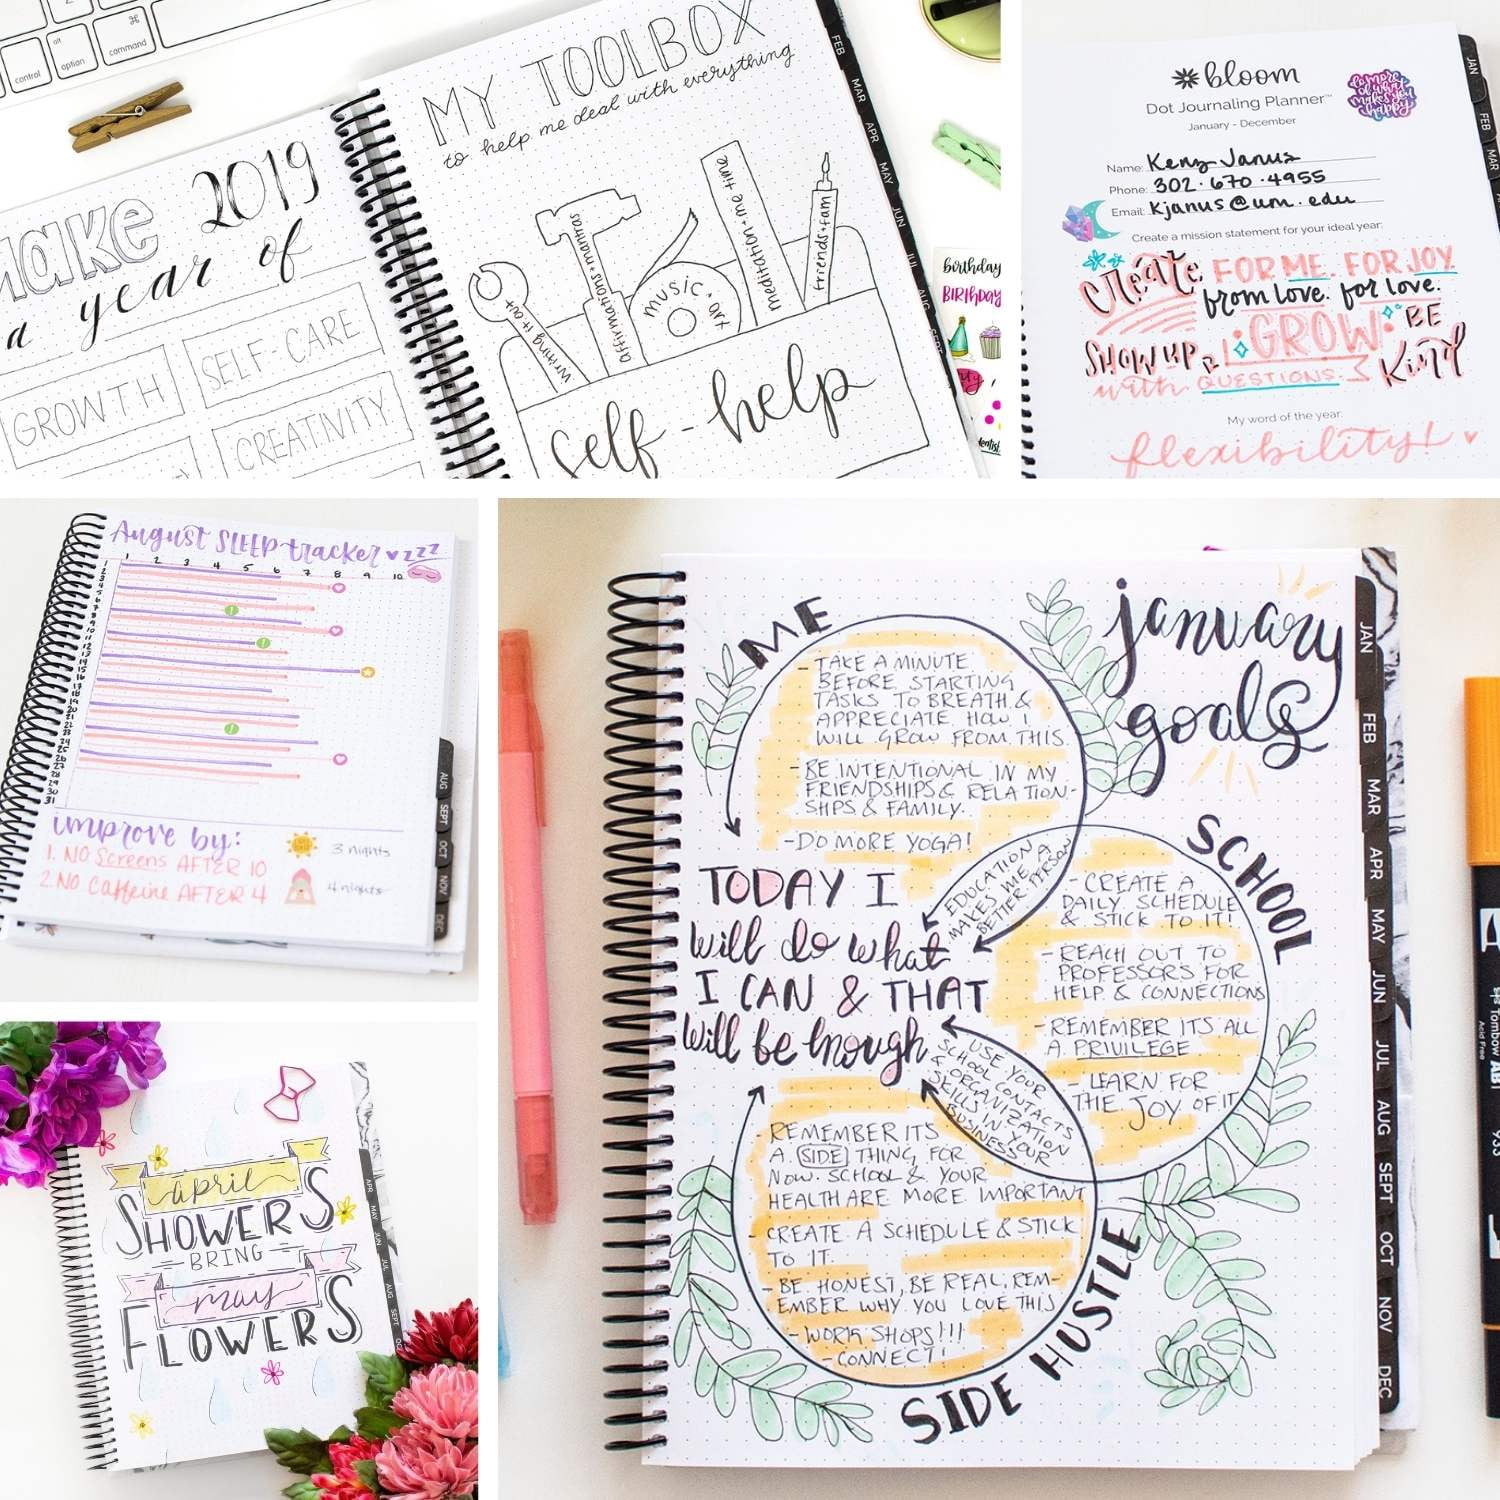 control
alt
option
⌘
command
make 2019
a year of
GROWTH
SELF CARE
CREATIVITY
MY TOOLBOX
to help me deal with everything
writing it out
affirmations + mantras
MUSIC
meditation + me time
friends + fam
self-help
FEB
MAR
APR
MAY
JUN
JUL
AUG
birthday
BIRTHDAY
bloom
Dot Journaling Planner™
January - December
do more
of what
makes you
happy
Name: Kenz Janus
Phone: 302·670·4955
Email: Kjanus@um.edu
Create a mission statement for your ideal year:
Create FOR ME. FOR JOY.
from love. for love.
SHOW UP & GROW. BE
with QUESTIONS. Kind
My word of the year:
flexibility!
JAN
FEB
MAR
August SLEEP tracker zzz
1 2 3 4 5 6 7 8 9 10
improve by:
1. NO Screens AFTER 10
3 nights
2. NO Caffeine AFTER 4
4 nights
AUG
SEPT
OCT
NOV
DEC
april
SHOWERS
BRING
may
FLOWERS
APR
MAY
JUN
JUL
AUG
SEPT
january
goals
ME
- TAKE A MINUTE
BEFORE STARTING
TASKS TO BREATH &
APPRECIATE HOW I
WILL GROW FROM THIS
- BE INTENTIONAL IN MY
FRIENDSHIPS & RELATION-
SHIPS & FAMILY.
- DO MORE YOGA!
EDUCATION
MAKES ME A
BETTER PERSON
TODAY I
will do what
I CAN & THAT
will be enough
SCHOOL
- CREATE A
DAILY SCHEDULE
& STICK TO IT!
- REACH OUT TO
PROFESSORS FOR
HELP & CONNECTIONS
- REMEMBER ITS ALL
A PRIVILEGE
- LEARN FOR
THE JOY OF IT
USE YOUR
SCHOOL CONTACTS
& ORGANIZATION
SKILLS IN YOUR
BUSINESS
- REMEMBER ITS
A SIDE THING FOR
NOW. SCHOOL & YOUR
HEALTH ARE MORE IMPORTANT
- CREATE A SCHEDULE & STICK
TO IT.
- BE HONEST, BE REAL, REM-
EMBER WHY YOU LOVE THIS
- WORK SHOPS!!!
- CONNECT!
SIDE HUSTLE
JAN
FEB
MAR
APR
MAY
JUN
JUL
AUG
SEPT
OCT
NOV
DEC
Tombow
Acid Free
933